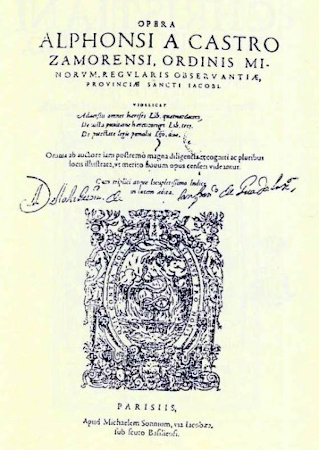 OPERA
ALPHONSI A CASTRO
ZAMORENSI, ORDINIS MI-
NORVM, REGVLARIS OBSERVANTIÆ,
PROVINCIÆ SANCTI IACOBI.
VIDELICET
Aduersus omnes hæreses Lib. quatuordecim,
De iusta punitione hæreticorum Lib. tres.
De potestate legis pœnalis Lib. duo.
Omnia ab auctore iam postremò magna diligentia recogniti ac pluribus
locis illustrata, vt merito nouum opus censeri videantur.
Cum triplici atque locupletissimo Indice
in lucem ædita.
de
PARISIIS,
Apud Michaelem Sonnium, via Iacobæa,
sub scuto Basiliensi.